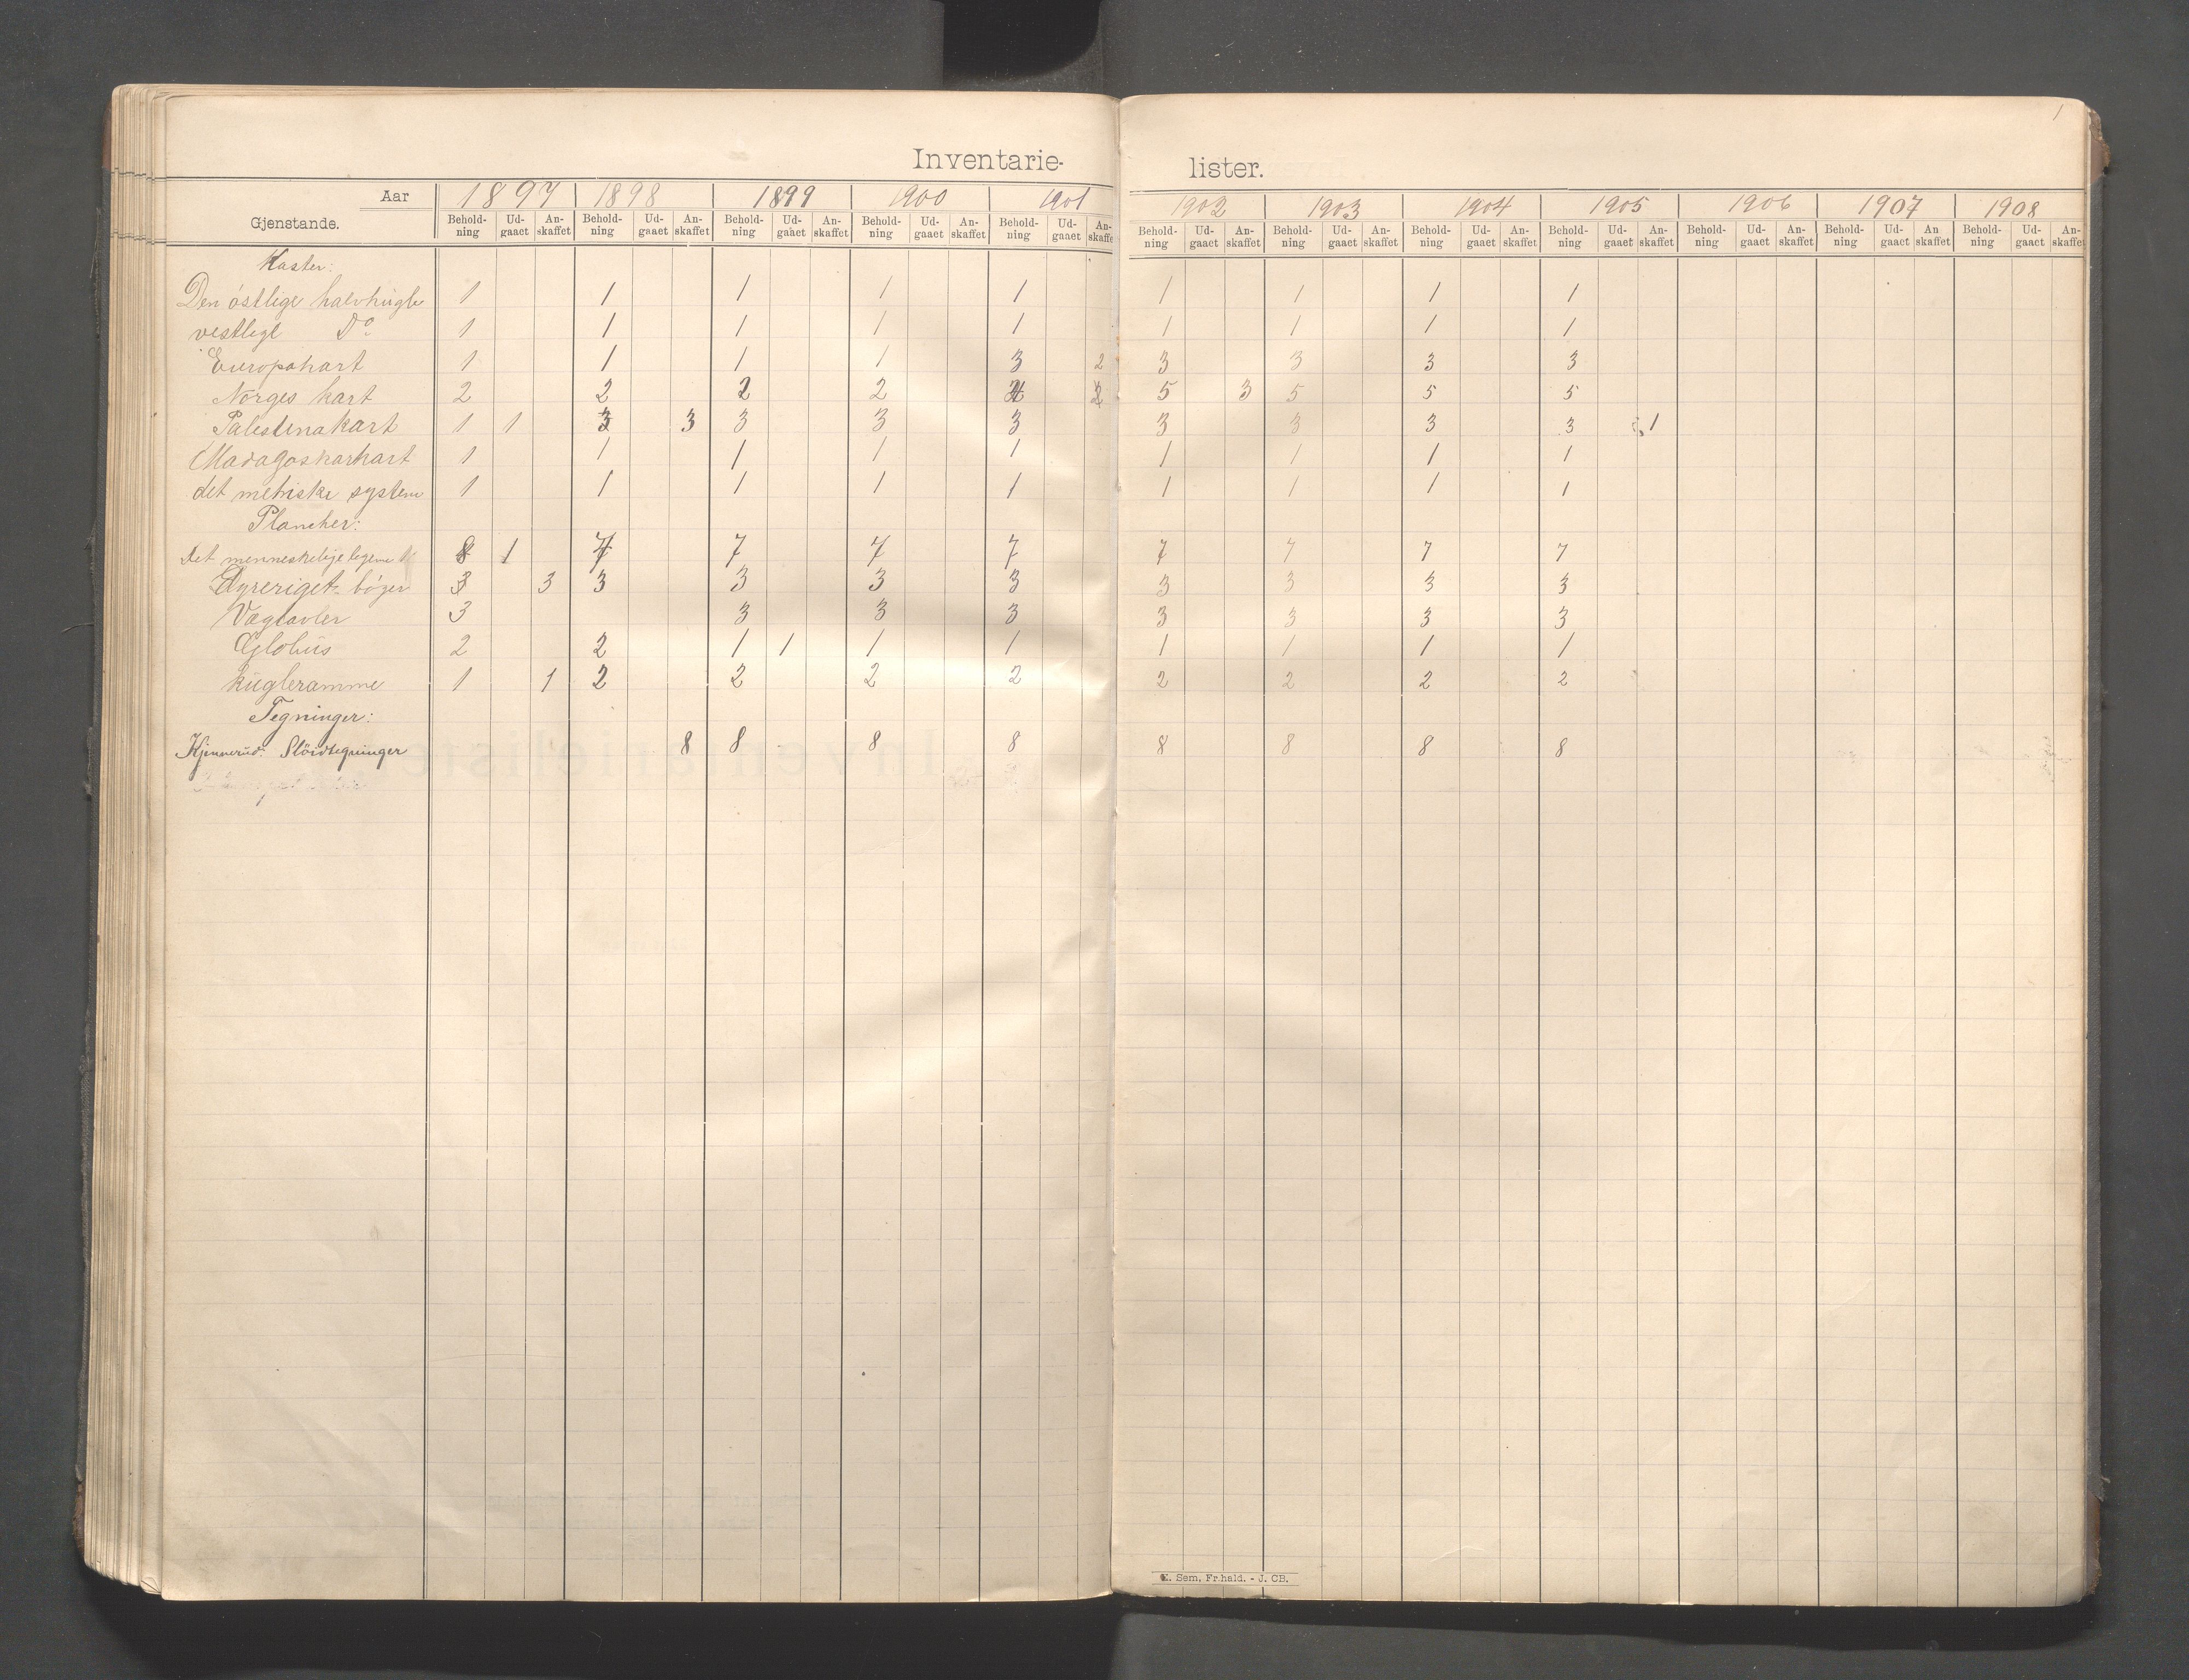 1
Inventarie-lister.
Aar 1897 1898 1899 1900 1901 1902 1903 1904 1905 1906 1907 1908
Gjenstande. Behold-ning Ud-gaaet An-skaffet Behold-ning Ud-gaaet An-skaffet Behold-ning Ud-gaaet An-skaffet Behold-ning Ud-gaaet An-skaffet Behold-ning Ud-gaaet An-skaffe Behold-ning Ud-gaaet An-skaffet Behold-ning Ud-gaaet An-skaffet Behold-ning Ud-gaaet An-skaffet Behold-ning Ud-gaaet An-skaffet Behold-ning Ud-gaaet An-skaffet Behold-ning Ud-gaaet An skaffet Behold-ning Ud-gaaet An-skaffet
Karter:
Den östlige halvkugle 1 1 1 1 1 1 1 1 1
vestlige Do 1 1 1 1 1 1 1 1 1
Europakart 1 1 1 1 3 2 3 3 3 3
Norges kart 2 2 2 2 5 3 5 5 5
Palestinakart 1 1 3 3 3 3 3 3 3 3 3 1
Madagaskarkart 1 1 1 1 1 1 1 1 1
det metriske system 1 1 1 1 1 1 1 1 1
Plancher:
Det menneskelige legeme 8 1 7 7 7 7 7 7 7 7
Dyreriget bøger 3 3 3 3 3 3 3 3 3 3
Vægtavler 3 3 3 3 3 3 3 3
Globus 2 2 1 1 1 1 1 1 1 1
kugleramme 1 1 2 2 2 2 2 2 2 2
Tegninger:
Kjennerud. Slöidtegninger 8 8 8 8 8 8 8 8
E. Sem, Fr.hald. - J. CB.